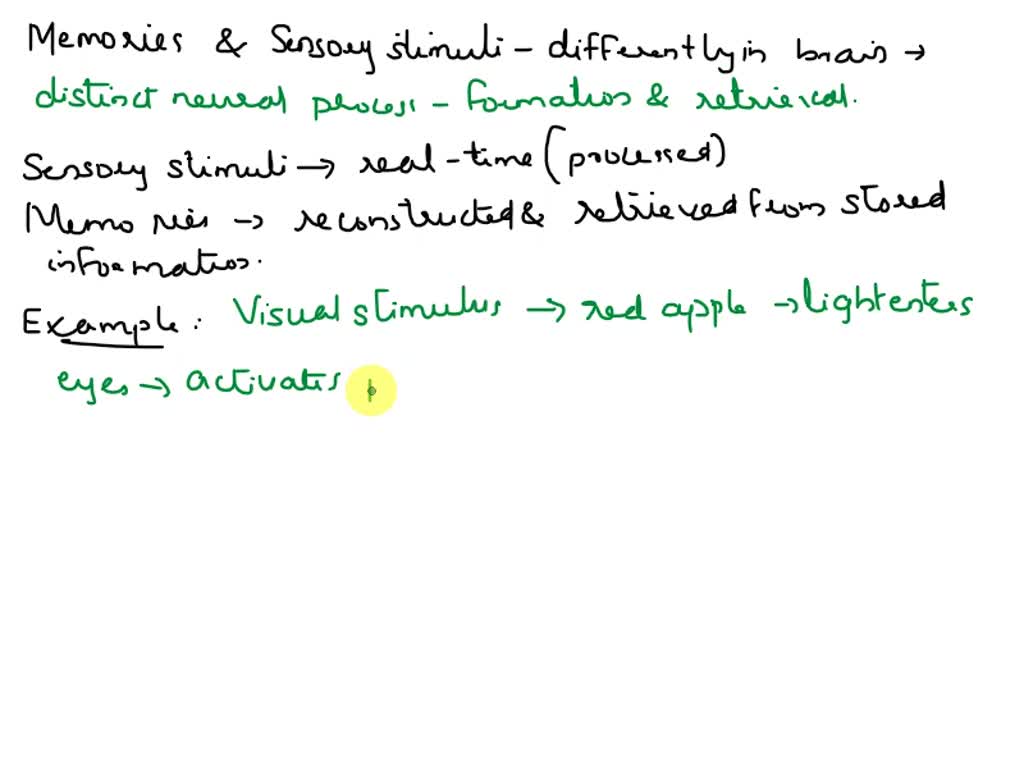 Memories & Sensory stimuli - differently in brain →
distinct neural process - formation & retrieval.
Sensory stimuli → real-time (processed)
Memories → reconstructed & retrieved from stored
information.
Example: Visual stimulus → red apple → light enters
eyes → activates p